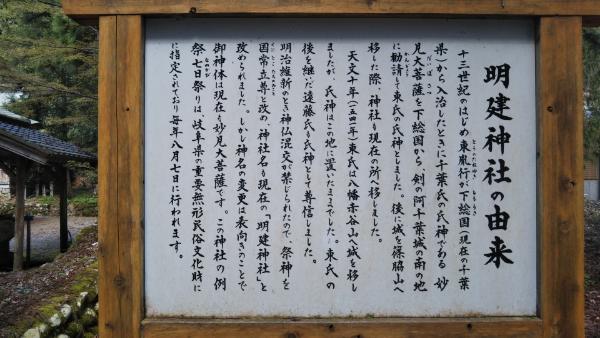 明建神社の由来
十三世紀のはじめ東胤行が下総国(現在の千葉
とうたねゆき しもうさ
県)から入治したときに千葉氏の氏神である 妙
見大菩薩を下総国から、剣の阿千葉城の南の地
だいぼさつ
に勧請して東氏の氏神としました。後に城を篠脇山へ
かんじょう
移した際、神社も現在の所へ移しました。
天文十年(一五四一年)東氏は八幡赤谷山へ城を移し
ましたが、氏神はこの地に置いたままでした。東氏の
後を継いだ遠藤氏も氏神として尊信しました。
明治維新のとき神仏混交が禁じられたので 祭神を
国常立尊と改め、神社名も現在の「明建神社」と
改められました。しかし神名の変更は表向きのことで
御神体は現在も妙見大菩薩です。この神社の例
祭七日祭りは、岐阜県の重要無形民俗文化財に
なぬかび
に指定されており毎年八月七日に行われます。